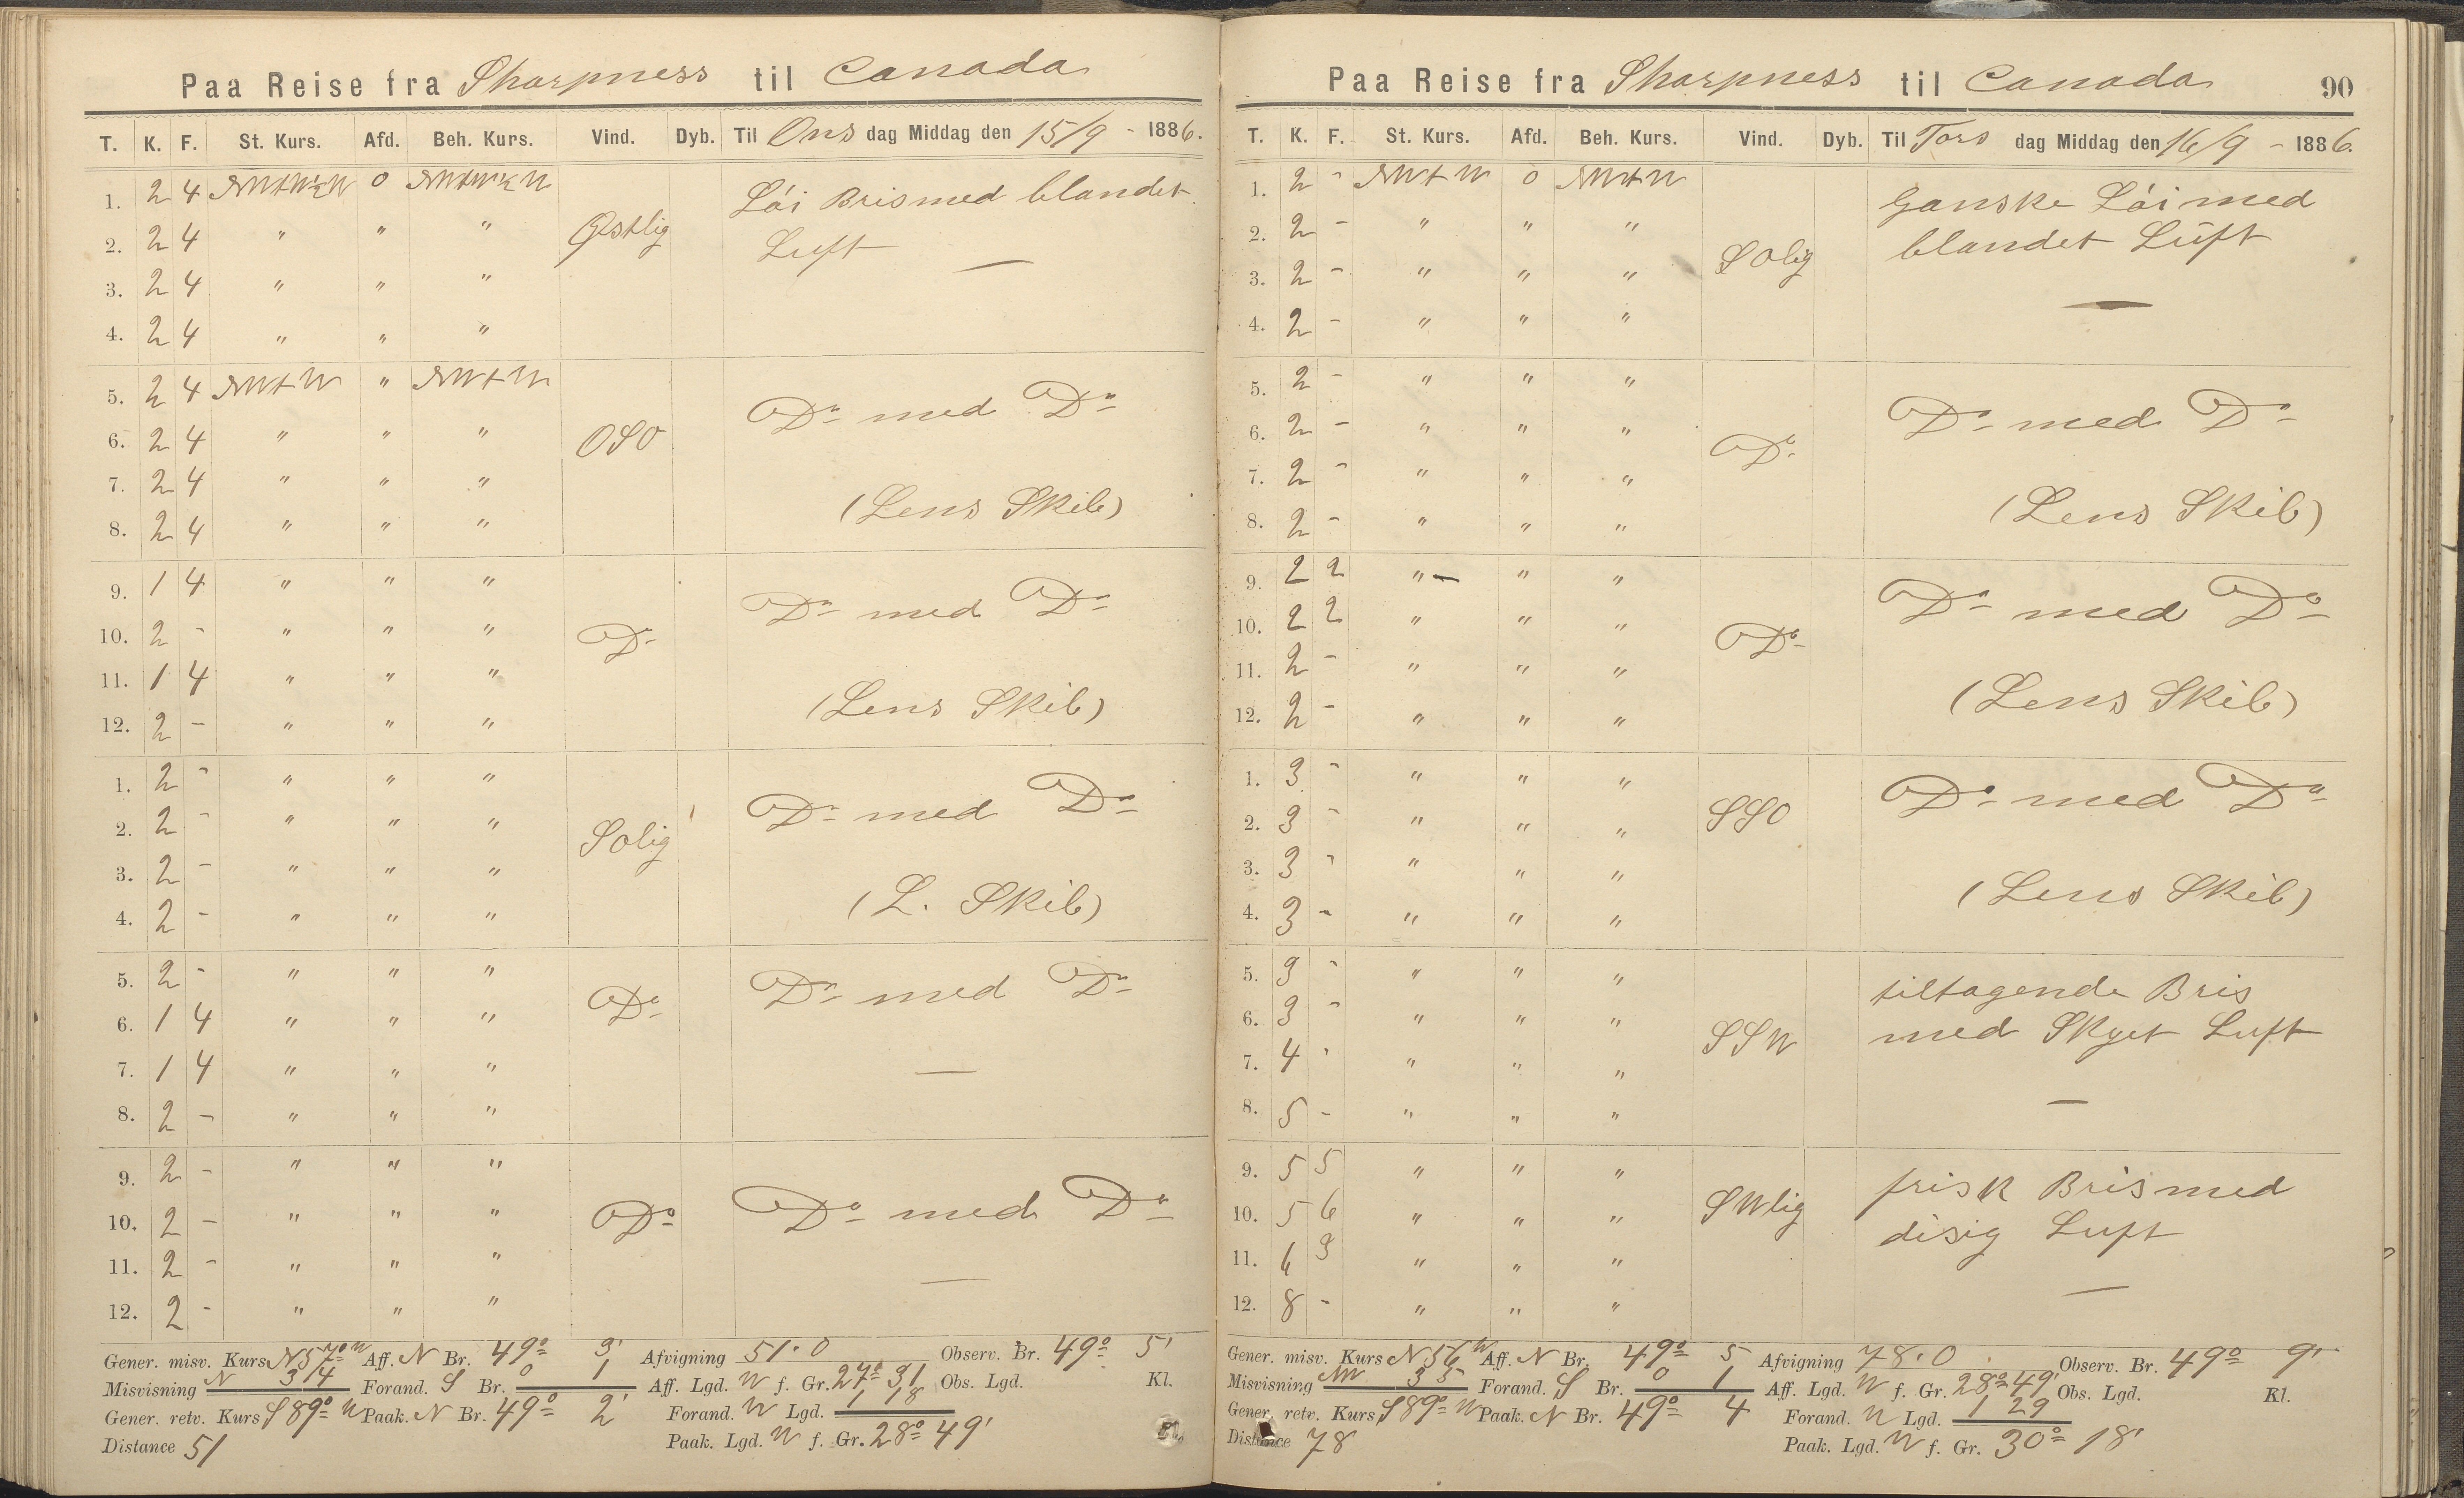 Paa Reise fra Sharpness til Canada
T. K. F. St. Kurs. Afd. Beh. Kurs. Vind. Dyb. Til Ons dag Middag den 15/9 - 1886.
1. 2 4 NWtW½W 0 NWtW½W Løi Bris med blandet
2. 2 4 " " " Østlig Luft —
3. 2 4 " " "
4. 2 4 " " "
5. 2 4 NWtW " NWtW Do med Do
6. 2 4 " " " OSO
7. 2 4 " " "
8. 2 4 " " " (Lens Skib)
9. 1 4 " " " Do med Do
10. 2 - " " " Do
11. 1 4 " " "
12. 2 - " " " (Lens Skib)
1. 2 - " " "
2. 2 - " " " Solig Do med Do
3. 2 - " " "
4. 2 - " " " (L. Skib)
5. 2 - " " " Do med Do
6. 1 4 " " " Do
7. 1 4 " " " —
8. 2 - " " "
9. 2 - " " "
10. 2 - " " " Do Do med Do
11. 2 - " " " —
12. 2 - " " "
Gener. misv. Kurs N57°W Aff. N Br. 49° 3' Afvigning 51.0 Observ. Br. 49° 5'
Misvisning N 3 4 Forand. S Br. 0 1 Aff. Lgd. W f. Gr. 27° 31 Obs. Lgd. Kl.
Gener. retv. Kurs S89°W Paak. N Br. 49° 2' Forand. W Lgd. 1 18
Distance 51 Paak. Lgd. W f. Gr. 28° 49'
Paa Reise fra Sharpness til Canada 90
T. K. F. St. Kurs. Afd. Beh. Kurs. Vind. Dyb. Til Tors dag Middag den 16/9 - 1886.
1. 2 - NWtW 0 NWtW Ganske Løi med
2. 2 - " " " blandet Luft
3. 2 - " " " Solig
4. 2 - " " " —
5. 2 - " " " Do med Do
6. 2 - " " " Do
7. 2 - " " "
8. 2 - " " " (Lens Skib)
9. 2 2 " " " Do med Do
10. 2 2 " " " Do
11. 2 - " " "
12. 2 - " " " (Lens Skib)
1. 3 - " " " Do med Do
2. 3 - " " " SSO
3. 3 - " " "
4. 3 - " " " (Lens Skib)
5. 3 - " " " tiltagende Bris
6. 3 - " " " SSW med Skyet Luft
7. 4 - " " "
8. 5 - " " " —
9. 5 5 " " " frisk Bris med
10. 5 6 " " " SWlig disig Luft
11. 6 3 " " "
12. 8 - " " " —
Gener. misv. Kurs N56W Aff. N Br. 49° 5 Afvigning 78.0 Observ. Br. 49° 9'
Misvisning 35 Forand. S Br. 0 1 Aff. Lgd. W f. Gr. 28° 49' Obs. Lgd. Kl.
Gener. retv. Kurs S89°W Paak. N Br. 49° 4 Forand. W Lgd. 1 29
Distance 78 Paak. Lgd. W f. Gr. 30° 18'